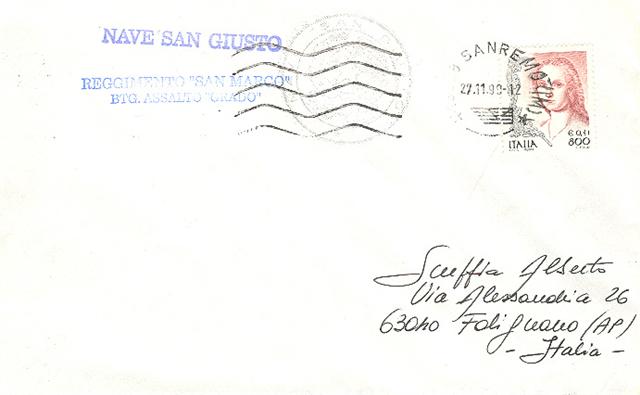 NAVE SAN GIUSTO
REGGIMENTO "SAN MARCO"
BTG. ASSALTO "GRADO"
SANREMO (IM)
27.11.99-12
ITALIA
€ 0,41
800
Scuffia Alberto
Via Alessandria 26
63040 Folignano (AP)
- Italia -